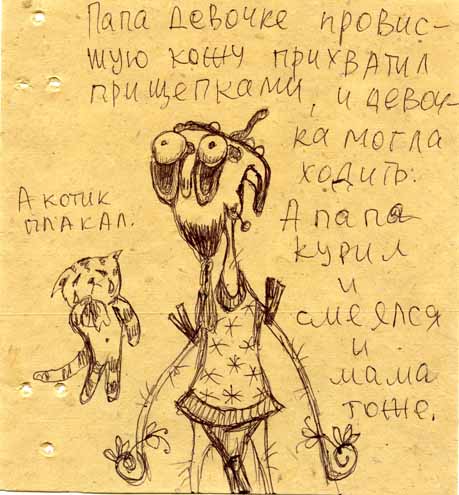 Папа девочке провис-
шую кожу прихватил
прищепками, и девоч-
ка могла
ходить.
А папа
курил
и
смеялся
и
мама
тоже.
А котик
плакал.